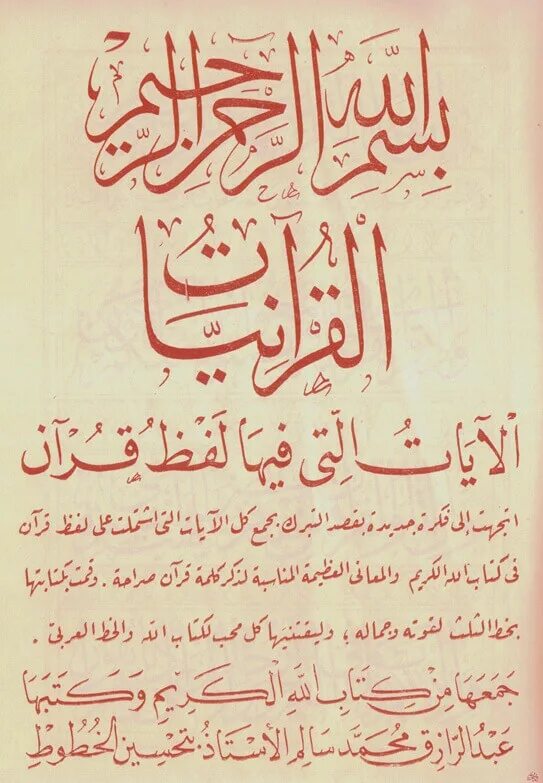 بِسْمِ اللهِ الرَّحْمَنِ الرَّحِيمِ
الْقُرْآنِيَّاتُ
الْآيَاتُ الَّتِي فِيهَا لَفْظُ قُرْآن
اتجهت إلى فكرة جديدة بقصد التبرك بجمع كل الآيات التى اشتملت على لفظ قرآن
فى كتاب الله الكريم والمعانى العظيمة المناسبة لذكر كلمة قرآن صراحة . وقمت بكتابتها
بخط الثلث لقوته وجماله ؛ وليقتنيها كل محب لكتاب الله والخط العربى .
جَمَعَهَا مِنْ كِتَابِ اللهِ الْكَرِيمِ وَكَتَبَهَا
عَبْدُ الرَّازِقِ مُحَمَّد سَالِم الأُسْتَاذُ بِتَحْسِينِ الْخُطُوطِ